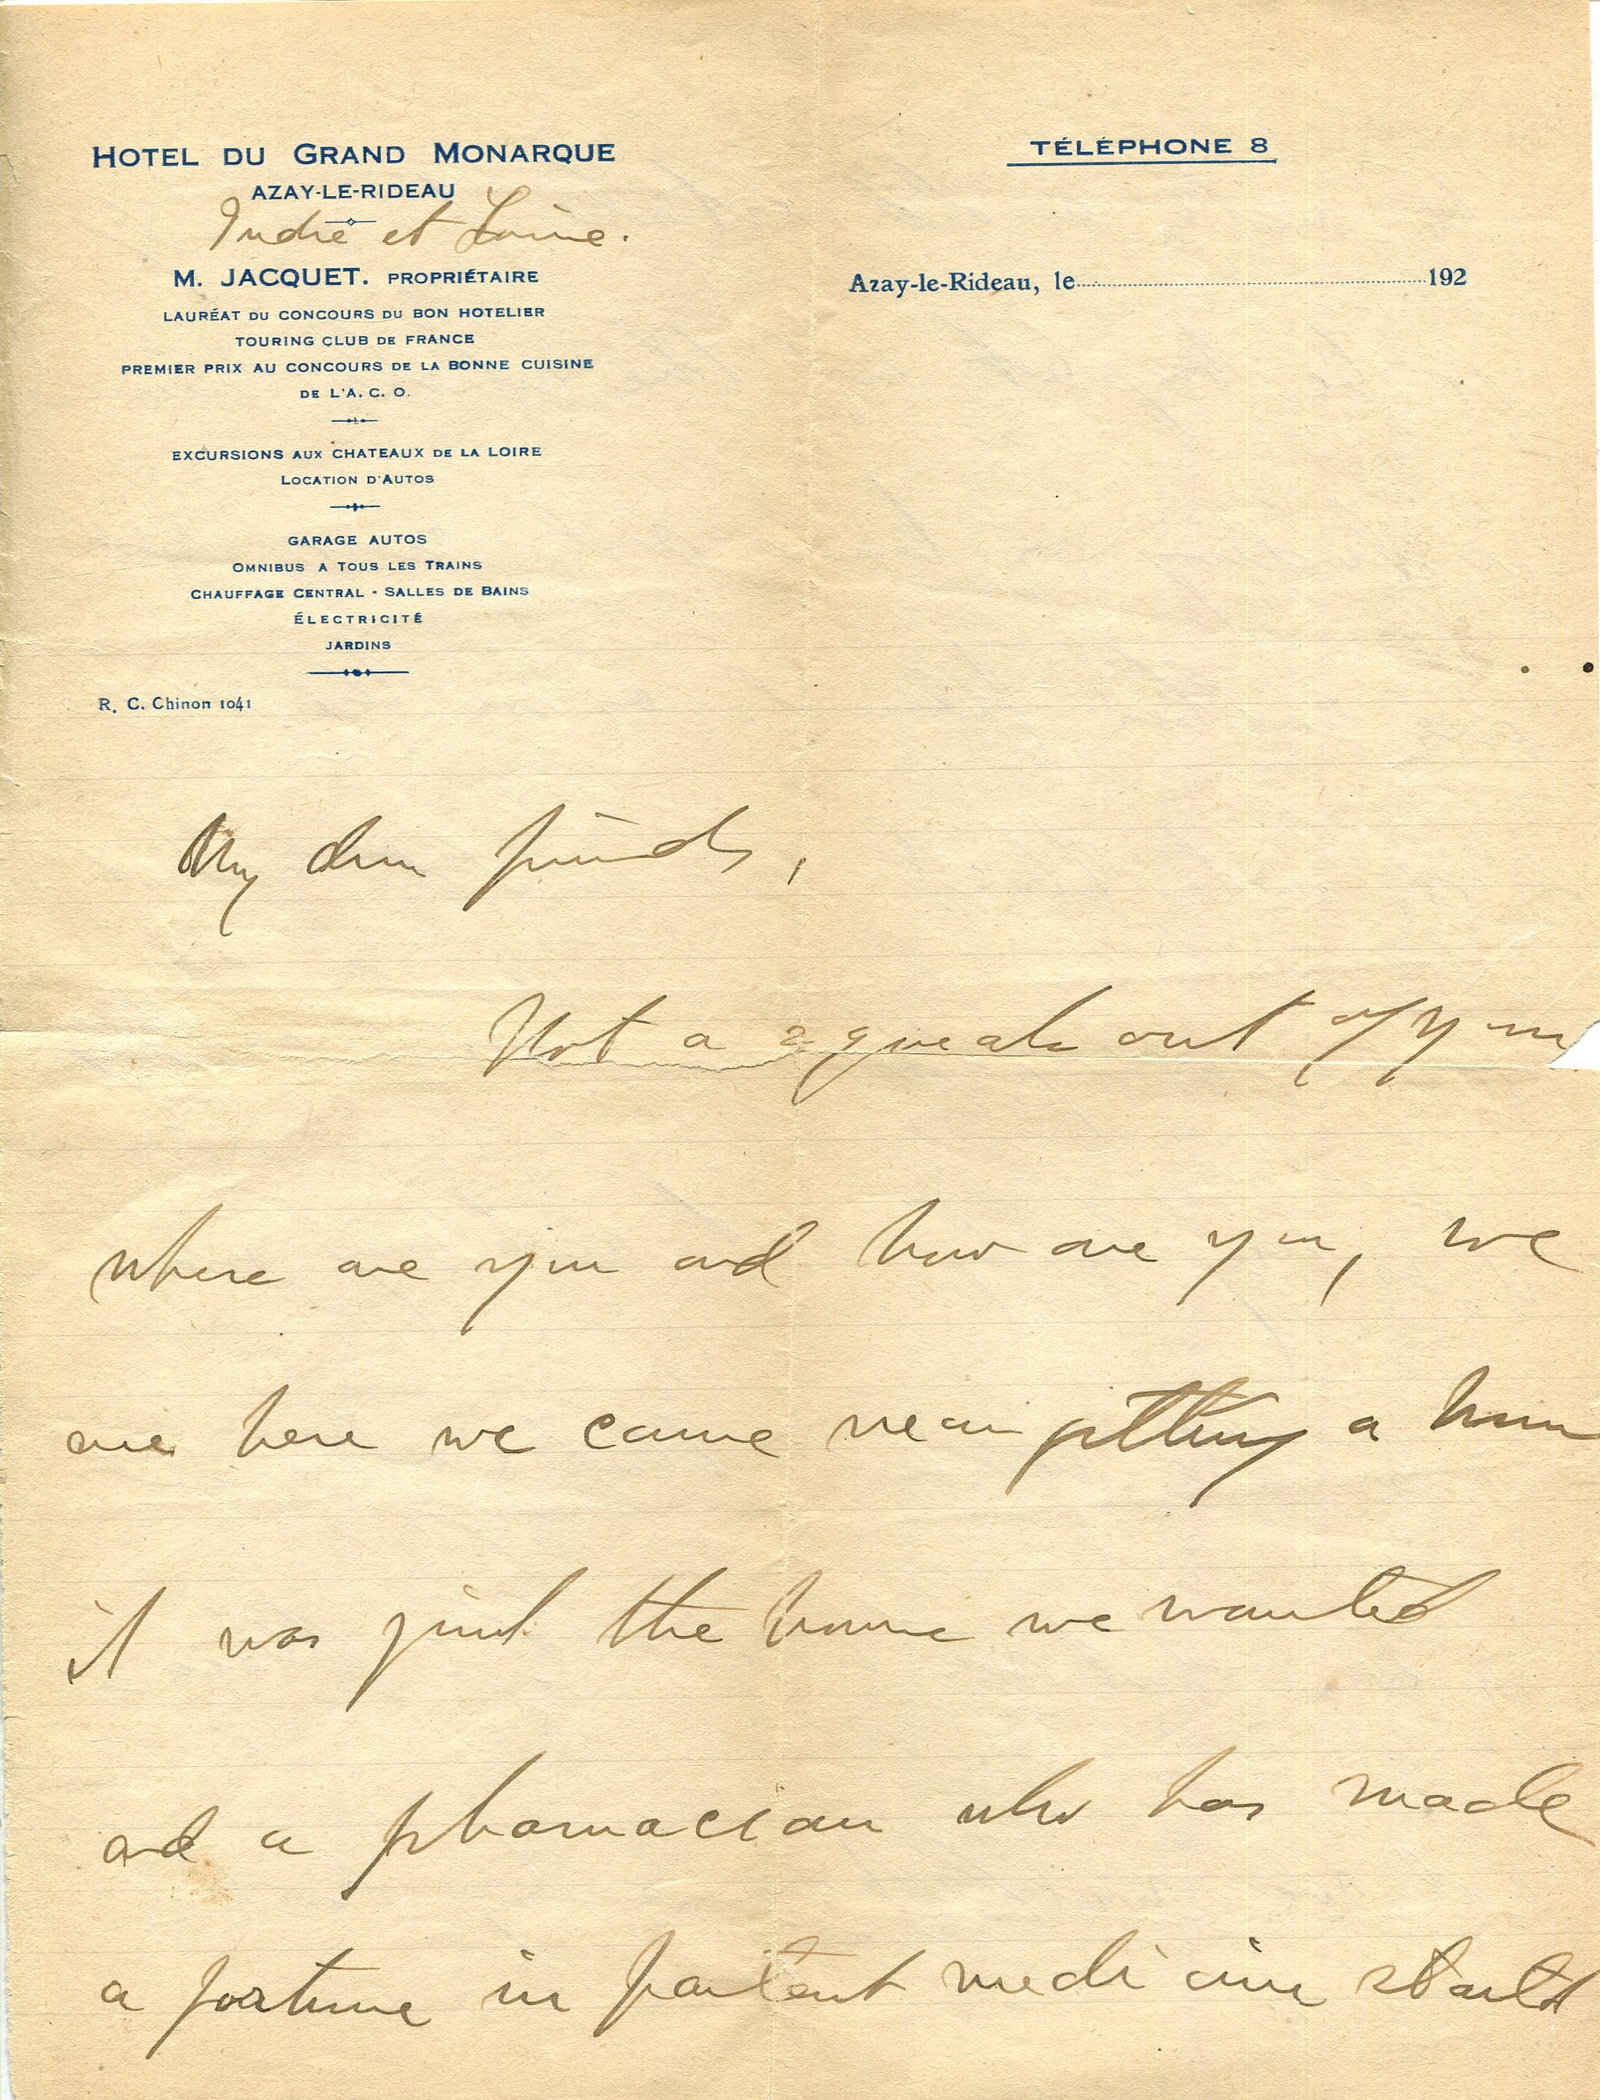 HOTEL DU GRAND MONARQUE
AZAY-LE-RIDEAU
Indre et Loire.
M. JACQUET. PROPRIÉTAIRE
LAURÉAT DU CONCOURS DU BON HOTELIER
TOURING CLUB DE FRANCE
PREMIER PRIX AU CONCOURS DE LA BONNE CUISINE
DE L'A. C. O.
EXCURSIONS AUX CHATEAUX DE LA LOIRE
LOCATION D'AUTOS
GARAGE AUTOS
OMNIBUS A TOUS LES TRAINS
CHAUFFAGE CENTRAL - SALLES DE BAINS
ÉLECTRICITÉ
JARDINS
R. C. Chinon 1041
TÉLÉPHONE 8
Azay-le-Rideau, le 192
My dear friends,
Not a squeak out of you
where are you and how are you, we
are here we came near getting a house
it was just the house we wanted
and a pharmacian who has made
a fortune in patent medicine